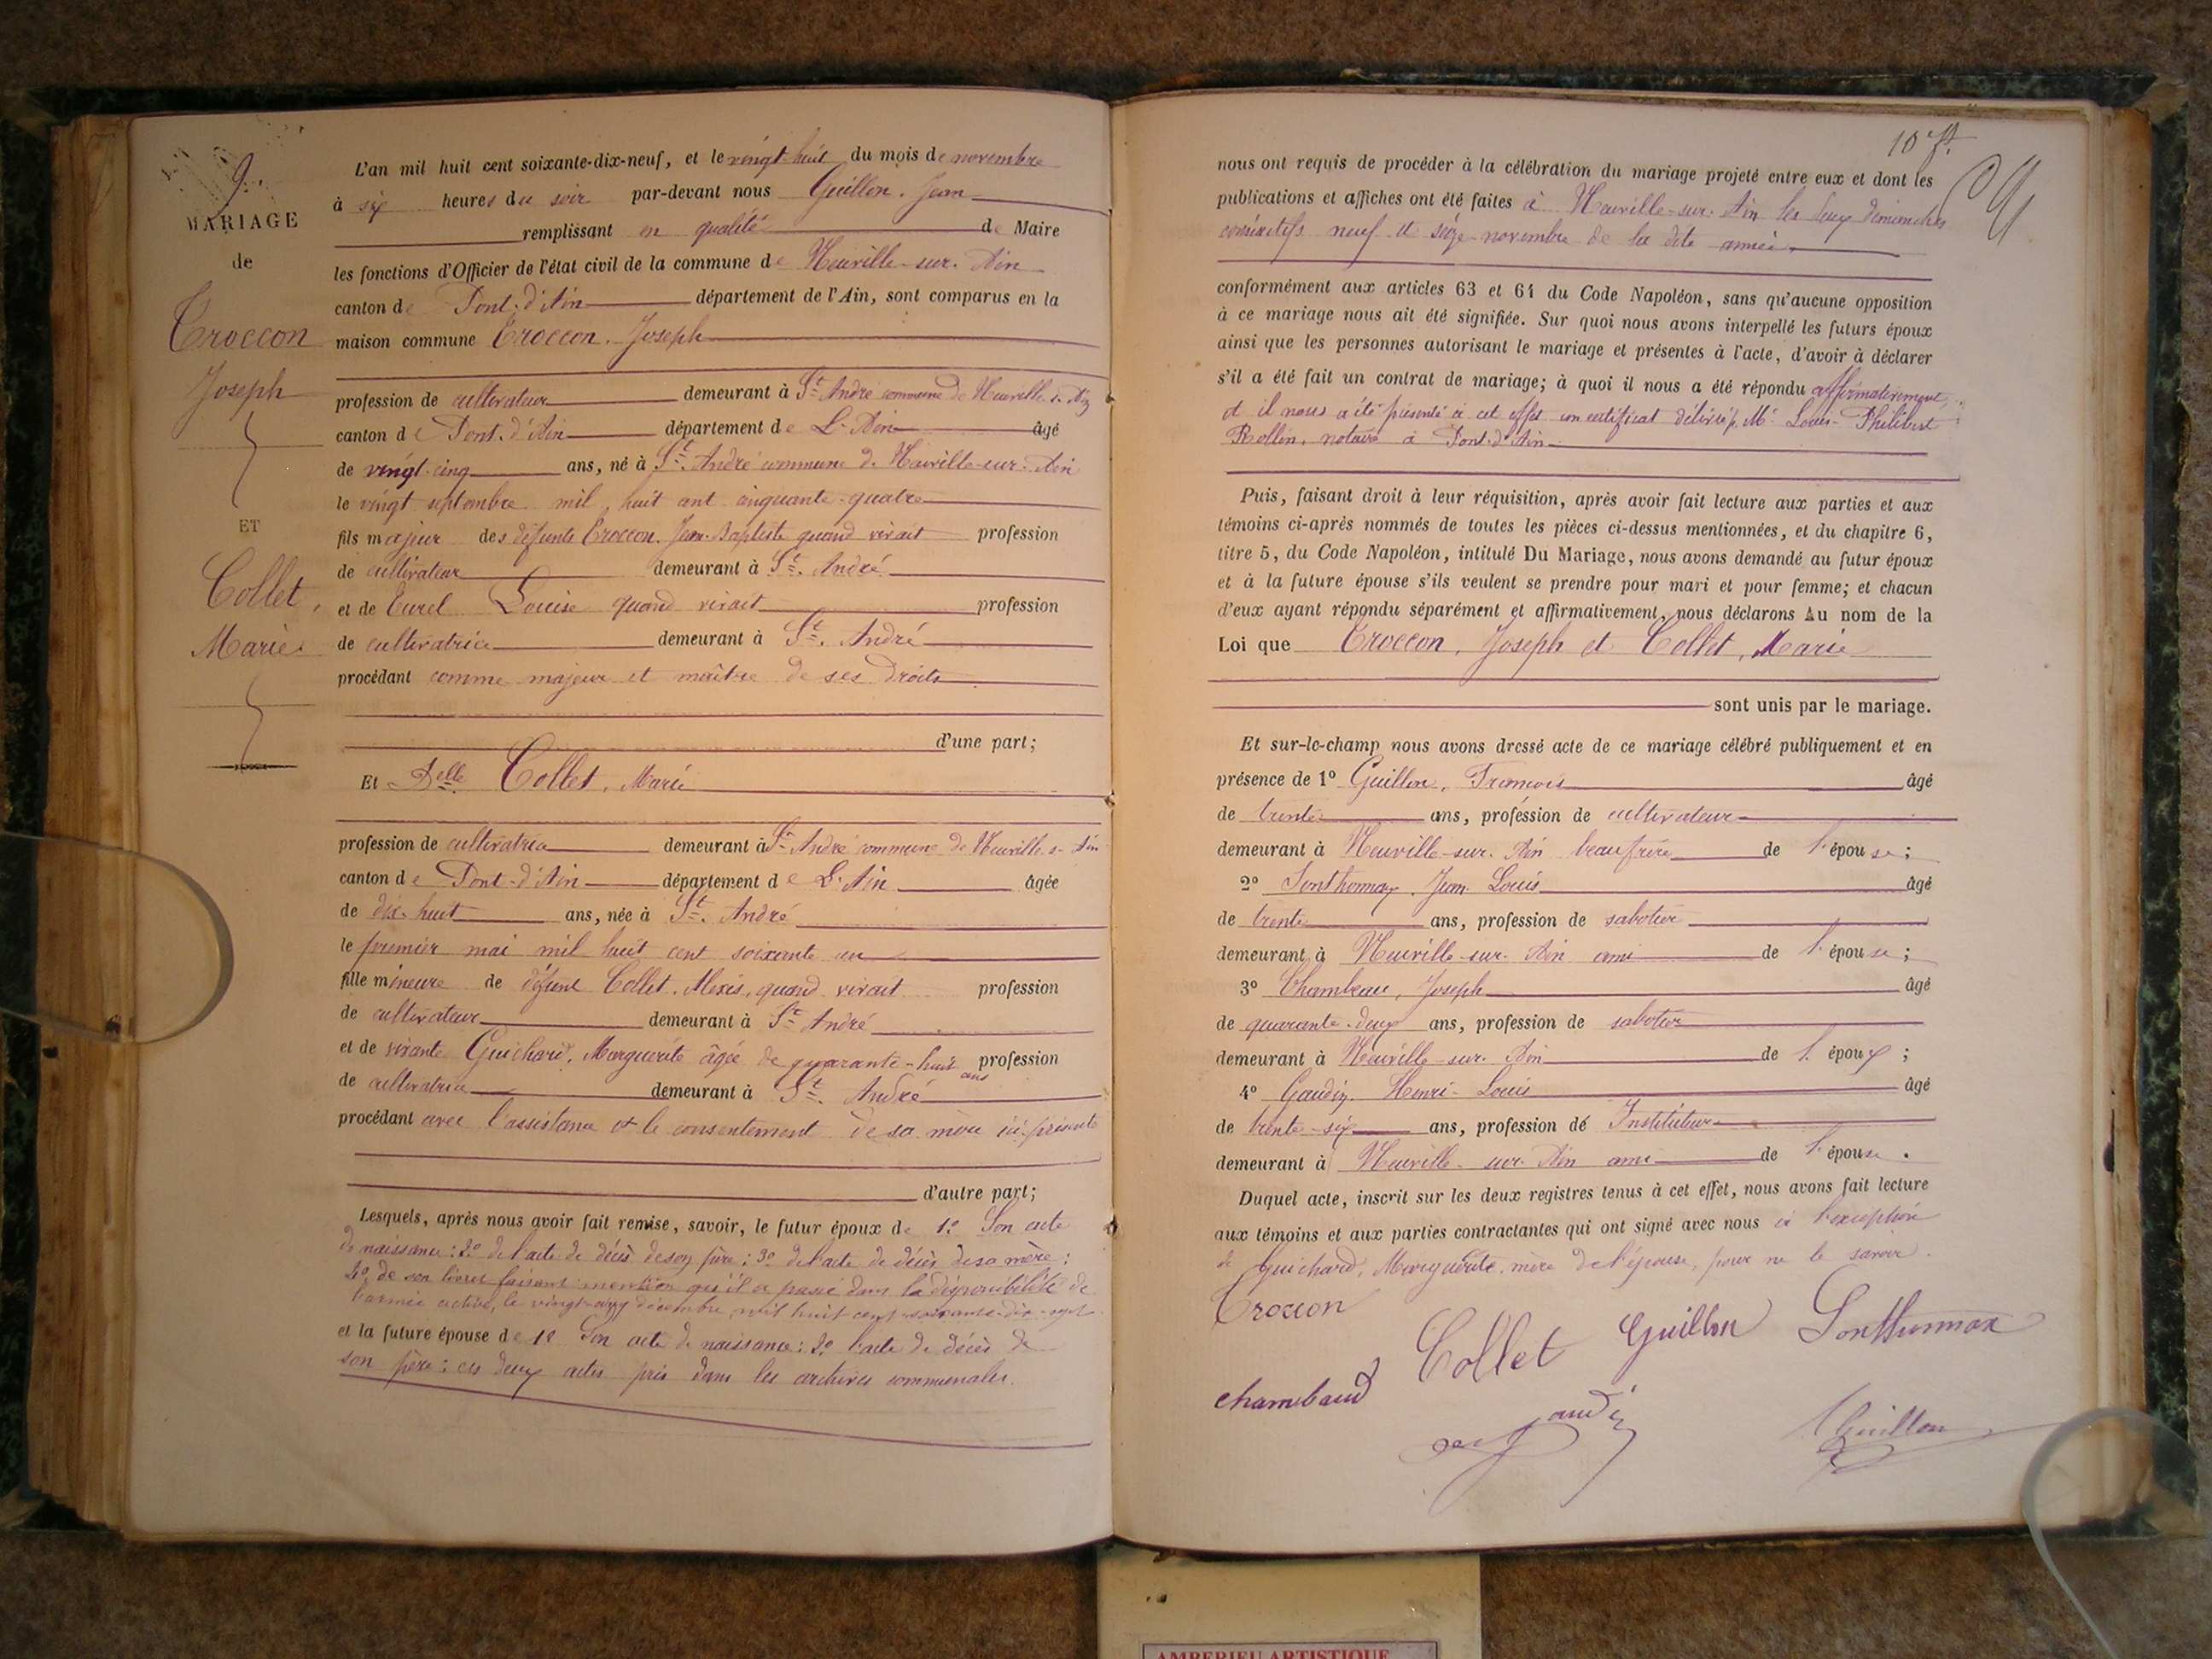 9.
MARIAGE
de
Croccon
Joseph
ET
Collet,
Marie
L'an mil huit cent soixante-dix-neuf, et le vingt-huit du mois de novembre
à six heures du soir par-devant nous Guillon. Jean
remplissant en qualité de Maire
les fonctions d'Officier de l'état civil de la commune de Neuville-sur-Ain
canton de Pont-d'Ain département de l'Ain, sont comparus en la
maison commune Croccon. Joseph
profession de cultivateur demeurant à St. André commune de Neuville s. Ain
canton de Pont-d'Ain département de L'Ain âgé
de vingt-cinq ans, né à St. André commune de Neuville-sur-Ain
le vingt septembre mil huit cent cinquante-quatre
fils majeur des défunts Croccon. Jean-Baptiste quand vivait profession
de cultivateur demeurant à St. André
et de Curel Louise quand vivait profession
de cultivatrice demeurant à St. André
procédant comme majeur et maître de ses droits
d'une part;
Et Delle Collet, Marie
profession de cultivatrice demeurant à St. André commune de Neuville s. Ain
canton de Pont-d'Ain département de L'Ain âgée
de dix-huit ans, née à St. André
le premier mai mil huit cent soixante un
fille mineure de défunt Collet. Alexis, quand vivait profession
de cultivateur demeurant à St. André
et de vivante Guichard, Marguerite âgée de quarante-huit ans profession
de cultivatrice demeurant à St. André
procédant avec l'assistance et le consentement de sa mère ici présente
d'autre part;
Lesquels, après nous avoir fait remise, savoir, le futur époux de 1° Son acte
de naissance: 2° de l'acte de décès de son père: 3° de l'acte de décès de sa mère:
4° de son livret faisant mention qu'il a passé dans la disponibilité de
l'armée active, le vingt-cinq décembre mil huit cent soixante-dix-sept
et la future épouse de 1° Son acte de naissance: 2° l'acte de décès de
son père: ces deux actes pris dans les archives communales.
10
nous ont requis de procéder à la célébration du mariage projeté entre eux et dont les
publications et affiches ont été faites à Neuville-sur-Ain les deux dimanches
consécutifs neuf et seize novembre de la dite année.
conformément aux articles 63 et 64 du Code Napoléon, sans qu'aucune opposition
à ce mariage nous ait été signifiée. Sur quoi nous avons interpellé les futurs époux
ainsi que les personnes autorisant le mariage et présentes à l'acte, d'avoir à déclarer
s'il a été fait un contrat de mariage; à quoi il nous a été répondu affirmativement,
et il nous a été présenté à cet effet un certificat délivré p. Me. Louis-Philibert
Rollin, notaire à Pont-d'Ain
Puis, faisant droit à leur réquisition, après avoir fait lecture aux parties et aux
témoins ci-après nommés de toutes les pièces ci-dessus mentionnées, et du chapitre 6,
titre 5, du Code Napoléon, intitulé Du Mariage, nous avons demandé au futur époux
et à la future épouse s'ils veulent se prendre pour mari et pour femme; et chacun
d'eux ayant répondu séparément et affirmativement, nous déclarons Au nom de la
Loi que Croccon, Joseph et Collet, Marie
sont unis par le mariage.
Et sur-le-champ nous avons dressé acte de ce mariage célébré publiquement et en
présence de 1° Guillon, François âgé
de trente ans, profession de cultivateur
demeurant à Neuville-sur-Ain beau frère de l'épouse;
2° Sonthonnax. Jean Louis âgé
de trente ans, profession de sabotier
demeurant à Neuville-sur-Ain ami de l'épouse;
3° Chambeau, Joseph âgé
de quarante-deux ans, profession de sabotier
demeurant à Neuville-sur-Ain de l'époux;
4° Gaudin Henri-Louis âgé
de trente-six ans, profession de Instituteur
demeurant à Neuville-sur-Ain ami de l'épouse.
Duquel acte, inscrit sur les deux registres tenus à cet effet, nous avons fait lecture
aux témoins et aux parties contractantes qui ont signé avec nous à l'exception
de Guichard, Marguerite, mère de l'épouse, pour ne le savoir.
Croccon
Collet Guillon Sonthonnax
chambaud
Gaudin
Guillon
AMBERIEU ARTISTIQUE